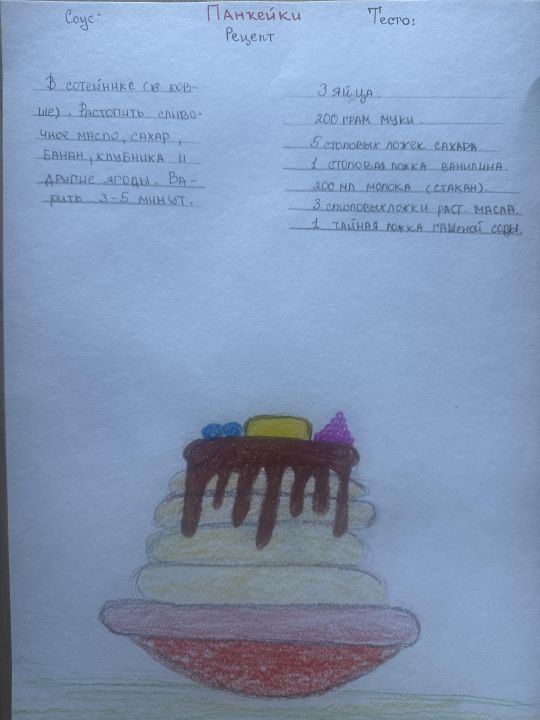 Панкейки
Рецепт
Соус:
В сотейнике (в ков-
ше). Растопить сливо-
чное масло, сахар,
банан, клубника и
другие ягоды. Ва-
рить 3-5 минут.
Тесто:
3 яйца.
200 грам муки.
5 столовых ложек сахара.
1 столовая ложка ванилина.
200 мл молока (стакан).
3 столовых ложки раст. масла.
1 чайная ложка гашеной соды.